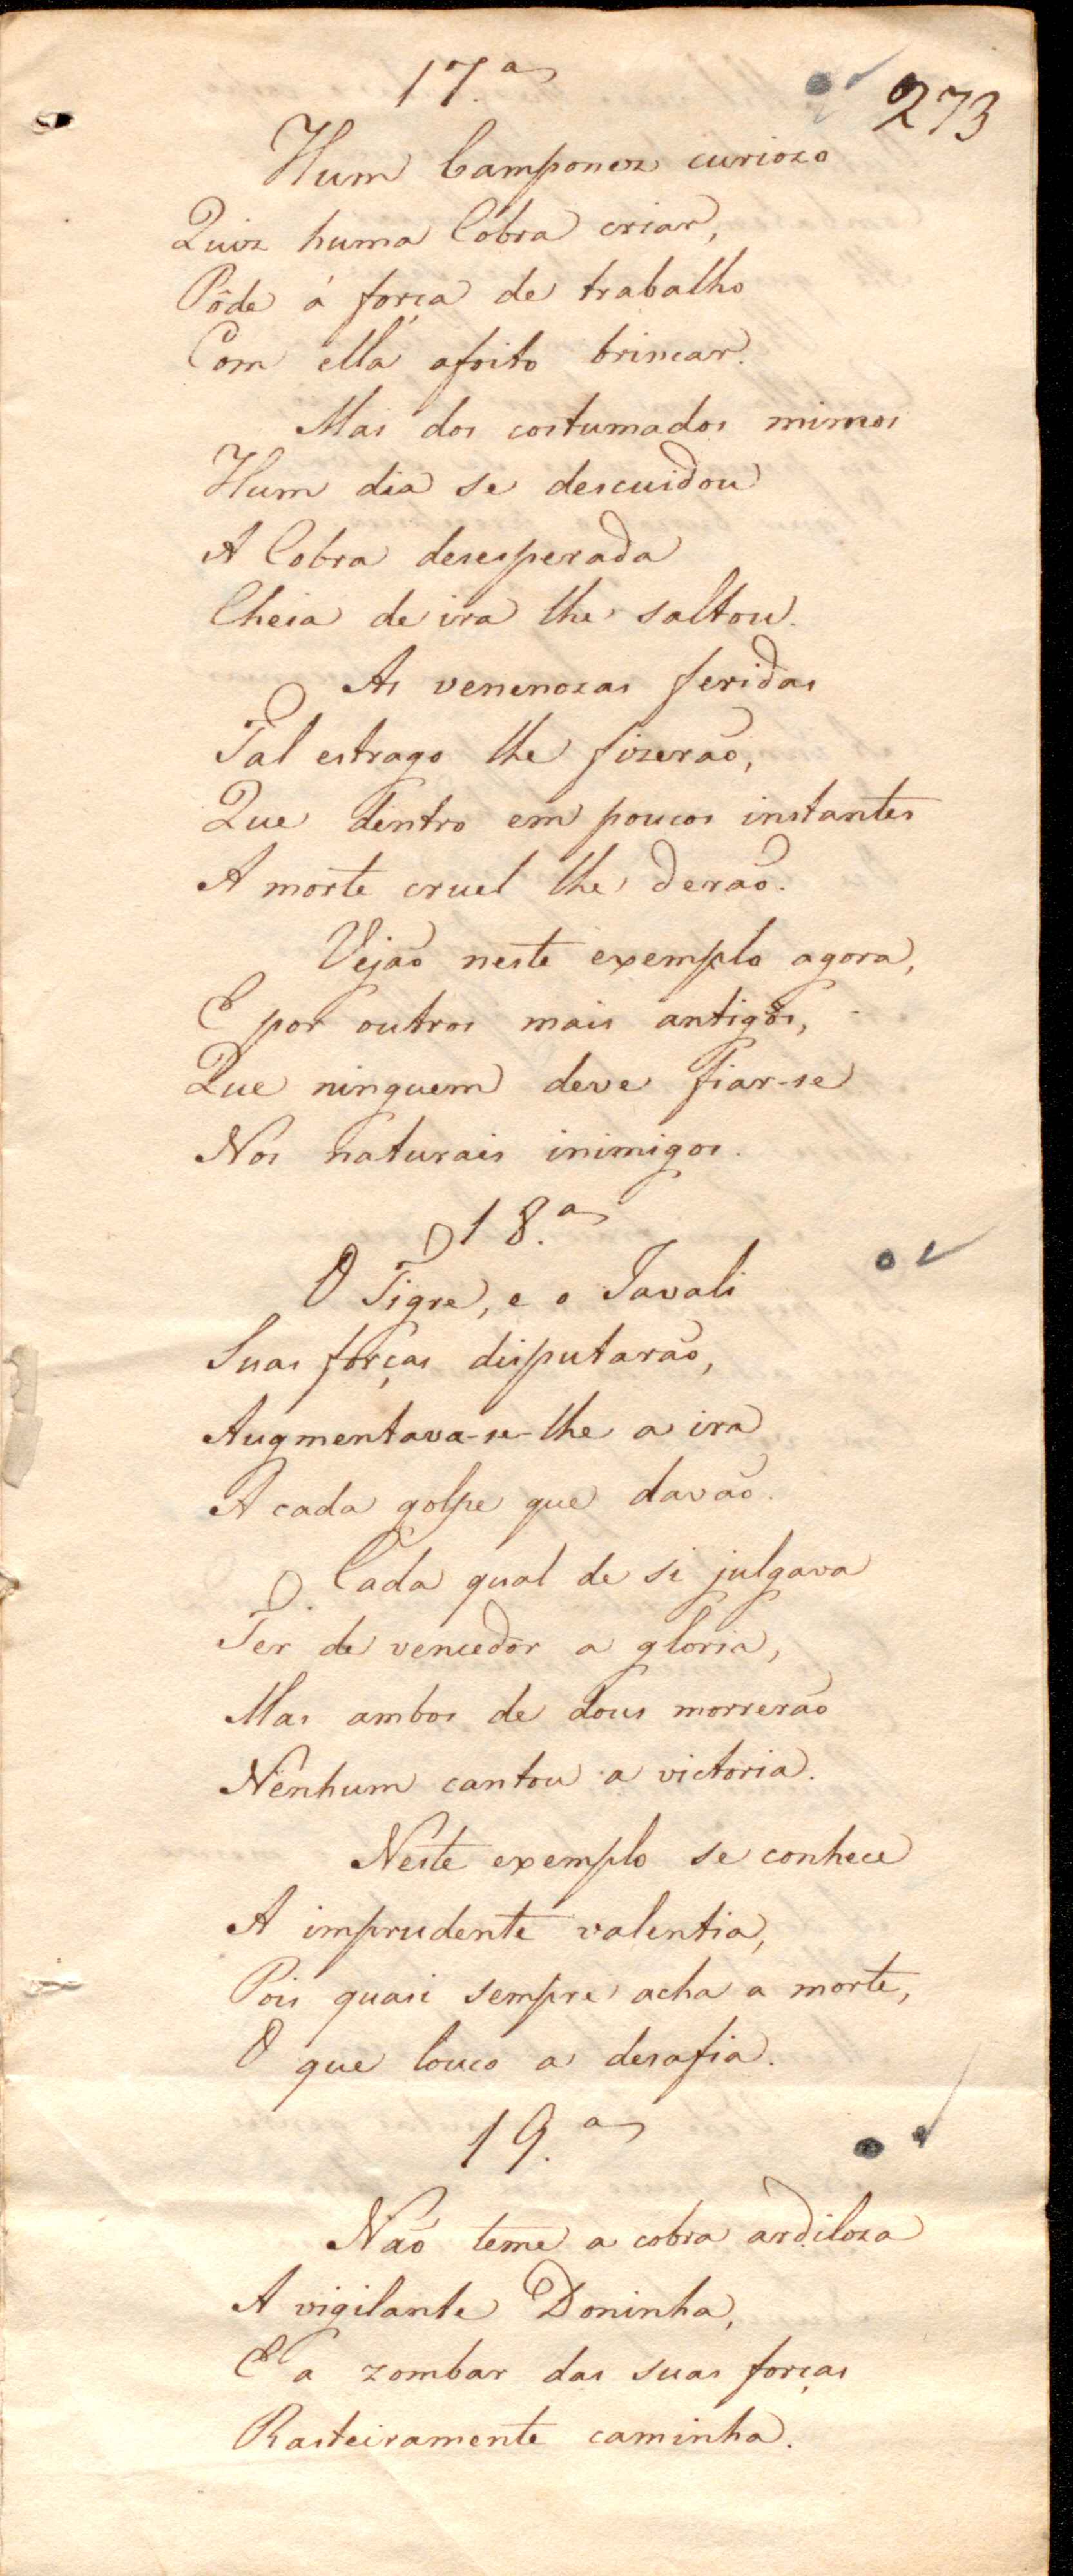 17.ª
273
Hum Camponez curiozo
Quiz huma Cobra criar,
Pôde á força de trabalho
Com ella afoito brincar.
Mas dos costumados mimos
Hum dia se descuidou
A Cobra desesperada
Cheia de ira lhe saltou.
As venenozas feridas
Tal estrago lhe fizerão,
Que dentro em poucos instantes
A morte cruel lhe derão.
Vejão neste exemplo agora,
E por outros mais antigos,
Que ninguem deve fiar-se
Nos naturais inimigos.
18.ª
O Tigre, e o Javali
Suas forças disputarão,
Augmentava-se-lhe a ira
A cada golpe que davão.
Cada qual de si julgava
Ter de vencedor a gloria,
Mas ambos de dous morrerão
Nenhum cantou a victoria.
Neste exemplo se conhece
A imprudente valentia,
Pois quasi sempre acha a morte,
O que louco a desafia.
19.ª
Não teme a cobra ardiloza
A vigilante Doninha,
E a zombar das suas forças
Rasteiramente caminha.